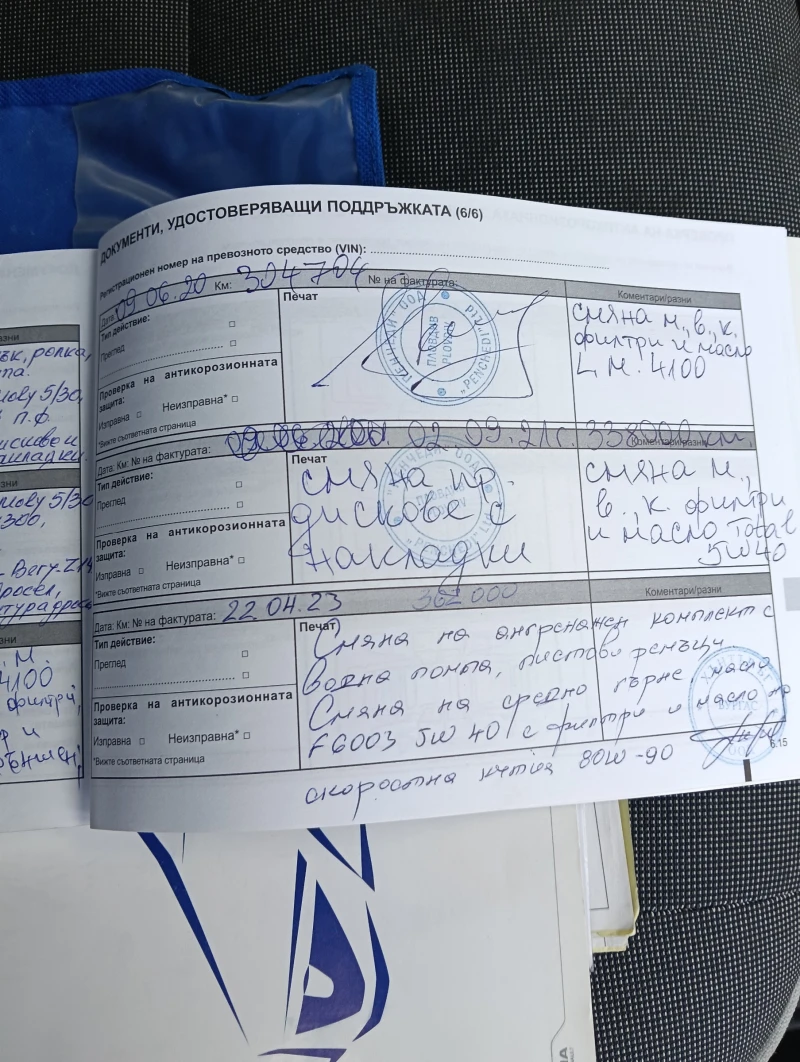 ДОКУМЕНТИ, УДОСТОВЕРЯВАЩИ ПОДДРЪЖКАТА (6/6)
Регистрационен номер на превозното средство (VIN):
Дата: 09 06.20 Км: 304704 № на фактурата:
Тип действие:
Преглед
Проверка на антикорозионната
защита:
Изправна Неизправна*
*Вижте съответната страница
Печат
"ПЕНЧЕВИ" ООД
ПЛОВДИВ
PLOVDIV
"PENCHEVI" LTD
Коментари/разни
смяна м., в., к.
филтри и масло
L.M. 4100
Дата: Км: № на фактурата: 02.09.21г. 338000 км.
Коментари/разни
Тип действие:
Преглед
Проверка на антикорозионната
защита:
Изправна Неизправна*
*Вижте съответната страница
Печат
смяна пр.
дискове с
накладки
смяна м.,
в., к. филтри
и масло Total
5W40
Дата: Км: № на фактурата: 22.04.23 362000
Коментари/разни
Тип действие:
Преглед
Проверка на антикорозионната
защита:
Изправна Неизправна*
*Вижте съответната страница
Печат
Смяна на ангренажен комплект с
водна помпа, пистови ремъци
Смяна на средно гърне, масло
5W40 с филтри и масло на
скоростна кутия 80W-90
БУРГАС
6.15
ък, ролка,
5/30
п.ф.
дискове и
накладки
5/30
разни
4100
филтри,